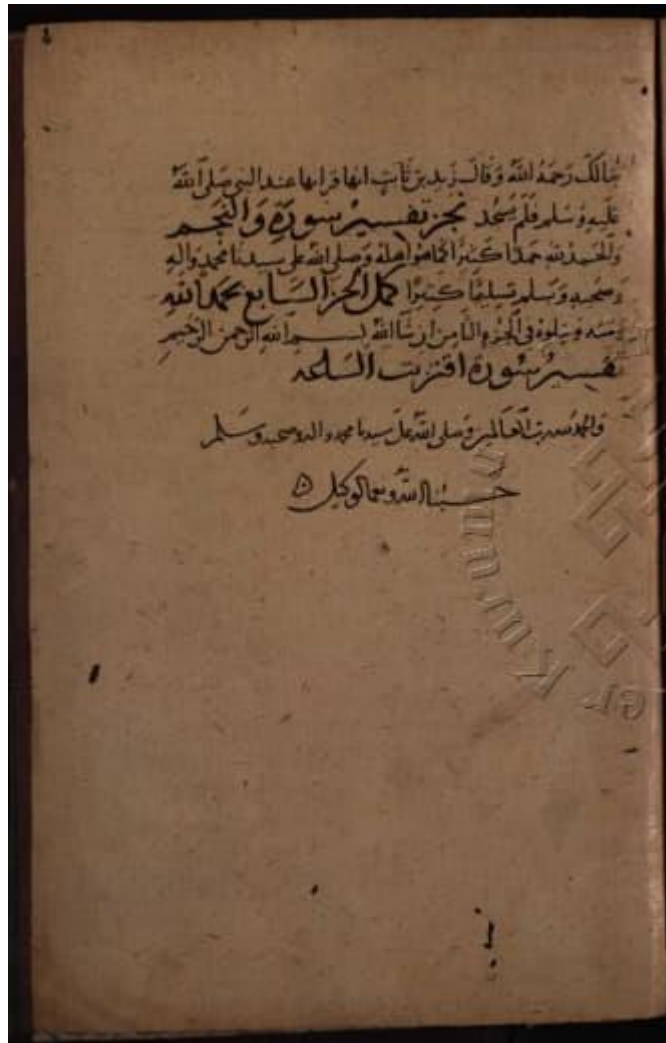 مالك رحمه الله وقال زيد بن ثابت انه قراها عند النبي صلى الله
عليه وسلم فلم يسجد نجز تفسير سورة والنجم
والحمد لله حمدا كثيرا كما هو اهله وصلى الله على سيدنا محمد واله
وصحبه وسلم تسليما كثيرا كمل الجزء السابع بحمد الله
ومنه ويتلوه في الجزء الثامن ان شا الله بسم الله الرحمن الرحيم
تفسير سورة اقتربت الساعه
والحمد لله رب العالمين وصلى الله على سيدنا محمد واله وصحبه وسلم
حسبنا الله ونعم الوكيل